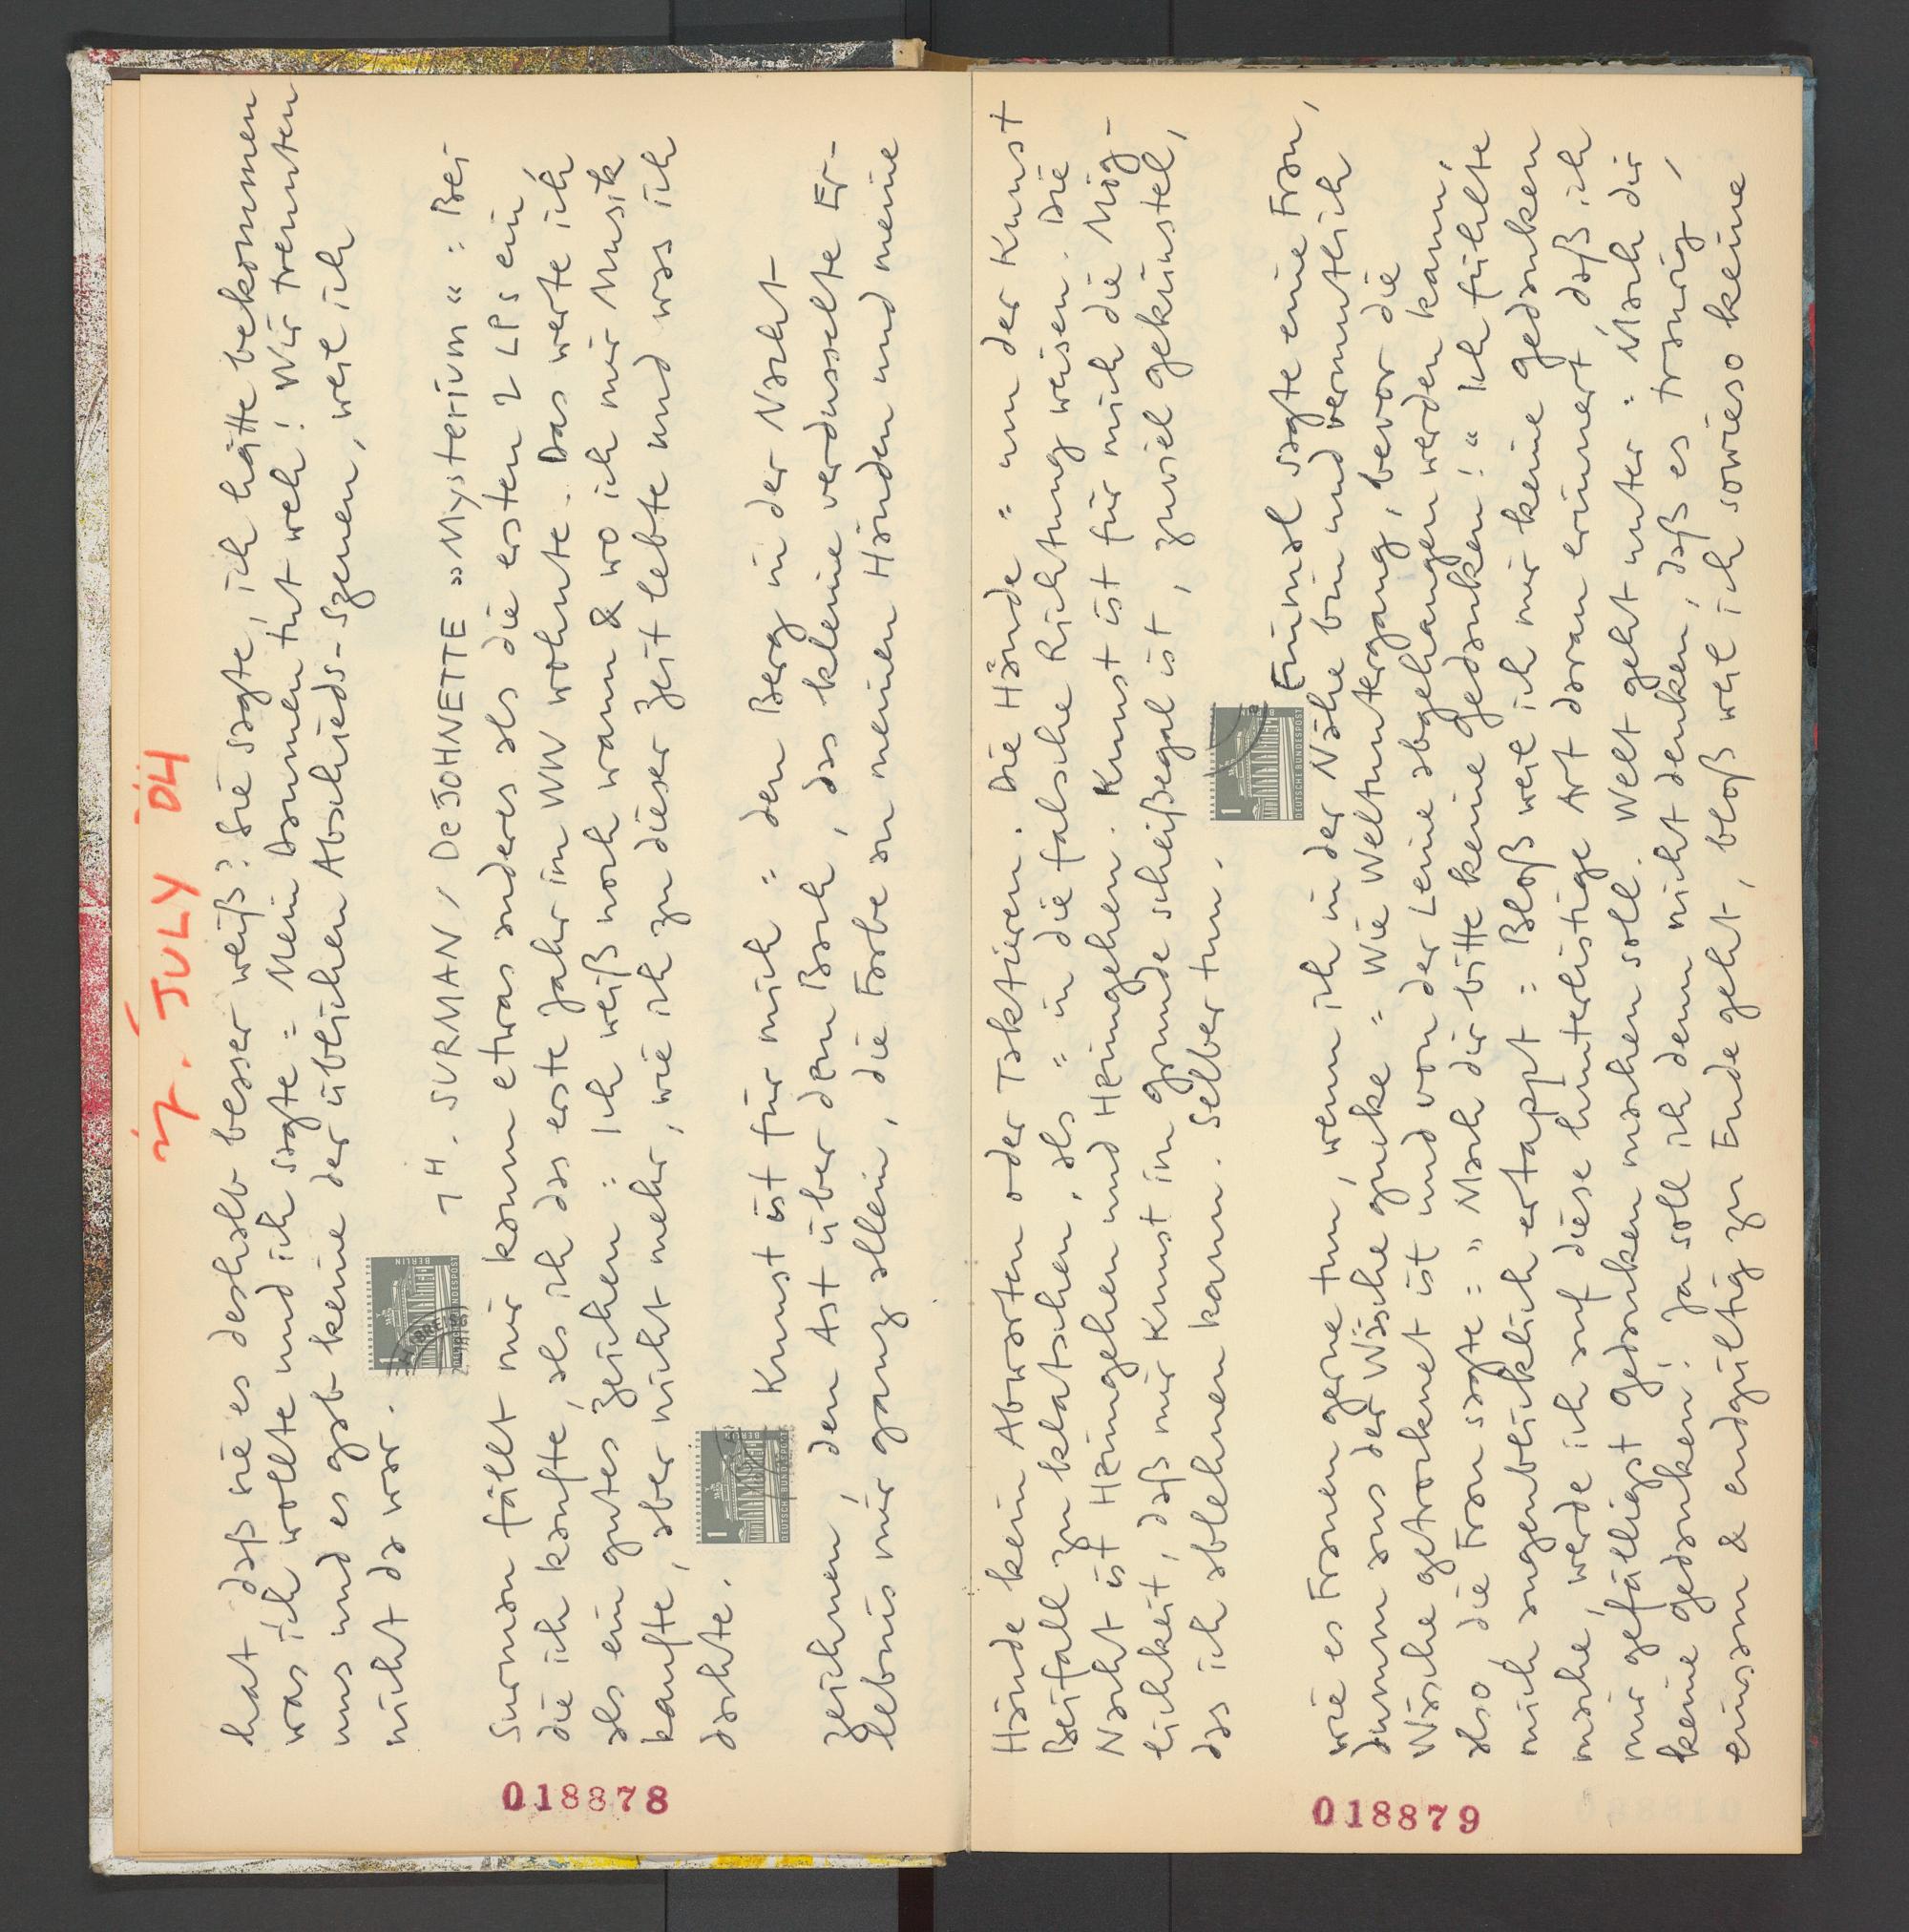 7. JULY 04
hat daß sie es deshalb besser weiß? Sie sagte, ich hätte bekommen
was ich wollte und ich sagte = Mein Daumen tut weh! Wir trennten
uns und es gab keine der üblichen Abschieds-Szenen, weil ich
nicht da war.
7H. SURMAN / DeJOHNETTE »Mysterium« : Bei
Surman fällt mir kaum etwas anderes als die ersten 2 LPs ein,
die ich kaufte, als ich das erste Jahr im WW wohnte. Das werte ich
als ein gutes Zeichen : Ich weiß noch wann & wo ich mir Musik
kaufte, aber nicht mehr, wie ich zu dieser Zeit lebte und was ich
dachte.
Kunst ist für mich = den Berg in der Nacht
zeichnen, den Ast über dem Bach, das kleine verdusselte Er-
lebnis mir ganz allein, die Farbe an meinen Händen und meine
018878
Hände kein Abwarten oder Taktieren. Die Hände = um der Kunst
Beifall zu klatschen, als = in die falsche Richtung weisen. Die
Nacht ist Heimgehen und Heimgehen. Kunst ist für mich die Mög-
lichkeit, daß mir Kunst im Grunde scheißegal ist, zuviel gekünstel,
das ich ablehnen kann. Selber tun.
Einmal sagte eine Frau,
wie es Frauen gerne tun, wenn ich in der Nähe bin und vermutlich
dumm aus der Wäsche gucke = Wie Weltuntergang, bevor die
Wäsche getrocknet ist und von der Leine abgehangen werden kann,
also die Frau sagte = »Mach dir bitte keine Gedanken!« Ich fühlte
mich augenblicklich ertappt = Bloß weil ich mir keine Gedanken
mache, werde ich auf diese hinterlistige Art daran erinnert, daß ich
mir gefälligst Gedanken machen soll. Welt geht unter : Mach dir
keine Gedanken! Ja soll ich denn nicht denken, daß es traurig,
einsam & endgültig zu Ende geht, bloß weil ich sowieso keine
018879
1
BERLIN
DEUTSCHE BUNDESPOST